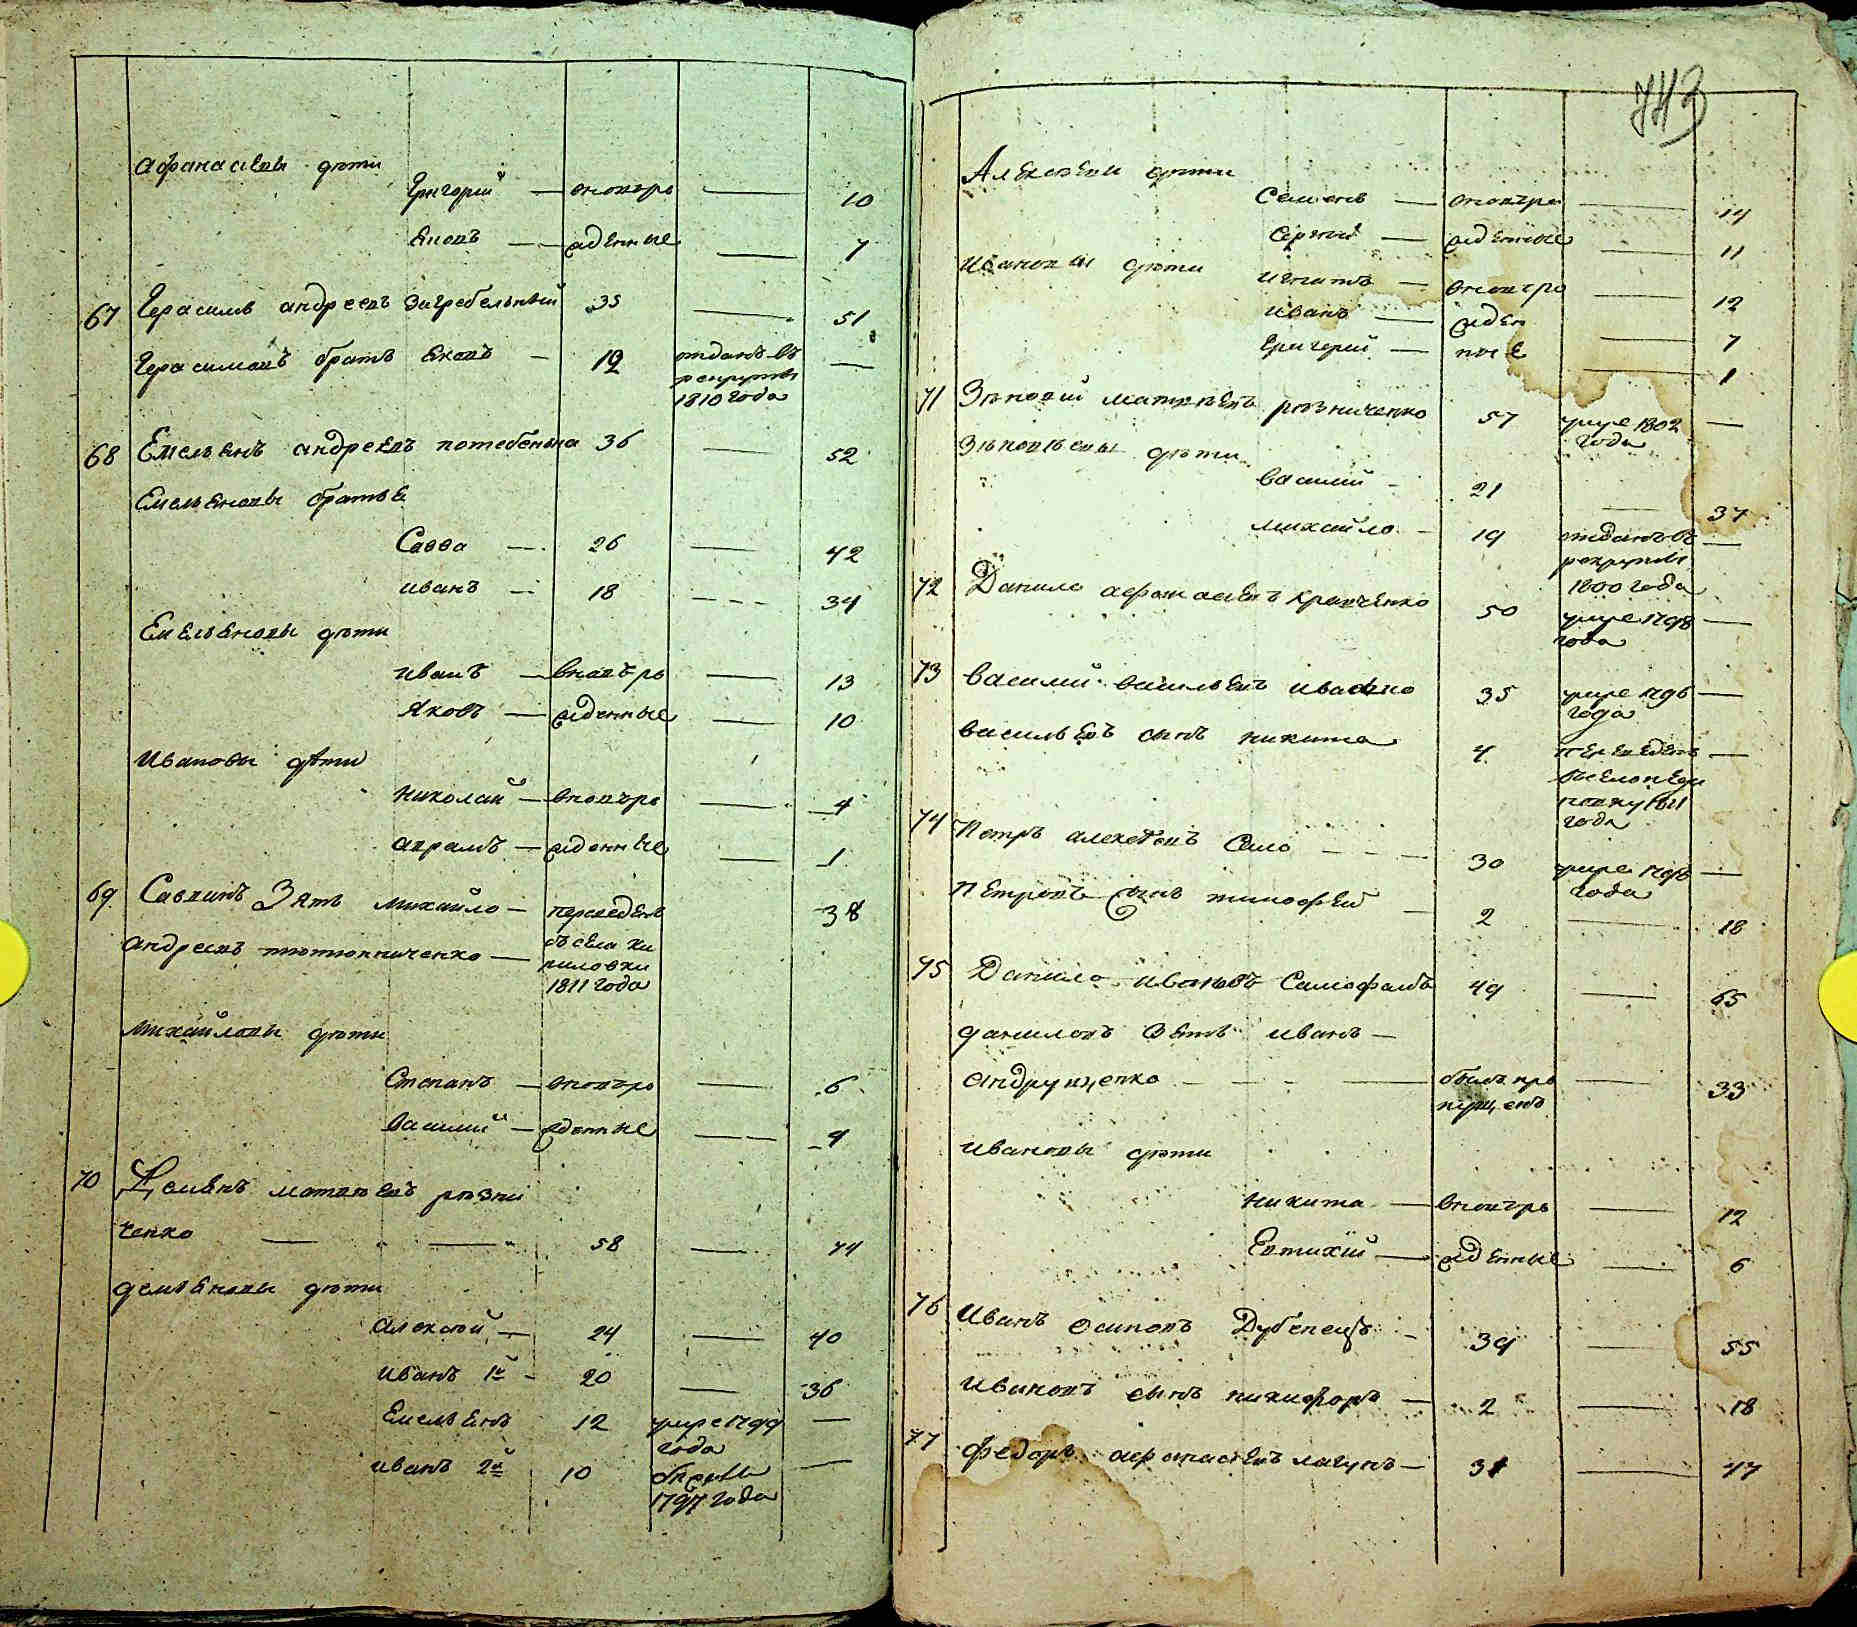 743
Афанасиевы дѣти
Григорий — вновъро — 10
Яковъ — жденные — 7
67 Герасимъ андреевъ загребельный 35 — 51
Герасимовъ братъ Яковъ — 19 отданъ въ —
рекруты
1810 года
68 Емельянъ андреевъ потебенька 36 — 52
Емельяновы братья
Савва — 26 — 42
иванъ — 18 — 34
Емельяновы дѣти
иванъ — вновъро — 13
Яковъ — жденные — 10
Ивановы дѣти
Николай — вновъро — 4
авраамъ — жденные — 1
69 Саввинъ Зять Михайло — переведенъ 38
андреевъ тютюнниченко — въ села
1811 года
Михайловы дѣти
Степанъ — вновъро — 6
Василий — жденные — 4
70 Демьянъ матвѣевъ рѣзни
ченко — 58 — 74
демьяновы дѣти
Алексѣй — 24 — 40
иванъ 1й — 20 — 36
Емельянъ 12 умре 1799 —
года
иванъ 2й 10 —
1797 года
Алексѣевы дѣти
Семенъ — вновъро — 14
Сергѣй — жденные — 11
Ивановы дѣти
игнатъ — вновъро — 12
иванъ — жден — 7
григорий — ные — 1
71 Зѣновий матвѣевъ рѣзниченко 57 умре 1802 —
года
Зѣновѣевы дѣти
василий — 21 — 37
михайло — 19 отданъ въ —
рекруты
1800 года
72 Данило афанасиевъ кравченко 50 умре 1798 —
года
73 Василий васильевъ ивашко 35 умре 1796 —
года
васильевъ сынъ никита 4 переведенъ —
1811
года
74 Петръ алексѣевъ Сало — 30 умре 1798 —
года
Петровъ сынъ тимофей — 2 — 18
75 Данило ивановъ Самофалъ 49 — 65
даниловъ Зять иванъ —
андрущенко — былъ про — 33
пущенъ
Ивановы дѣти
Никита — вновъро — 12
Евтихий — жденные — 6
76 Иванъ осиповъ Дубенецъ — 39 — 55
Ивановъ сынъ никифоръ — 2 — 18
77 Федоръ афанасиевъ лагунъ — 31 — 47